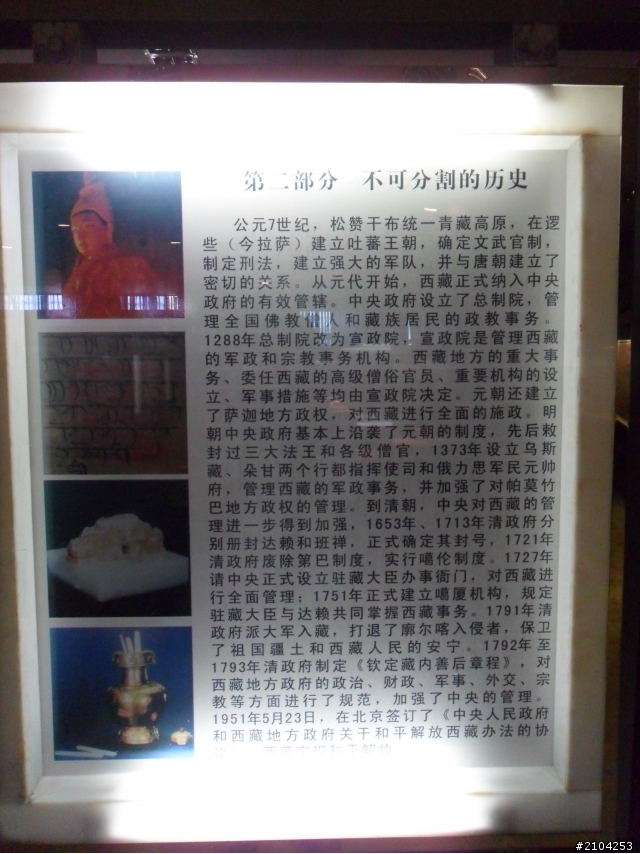 第二部分 不可分割的历史
公元7世纪，松赞干布统一青藏高原，在逻
些（今拉萨）建立吐蕃王朝，确定文武官制，
制定刑法，建立强大的军队，并与唐朝建立了
密切的关系。从元代开始，西藏正式纳入中央
政府的有效管辖。中央政府设立了总制院，管
理全国佛教僧人和藏族居民的政教事务。
1288年总制院改为宣政院，宣政院是管理西藏
的军政和宗教事务机构。西藏地方的重大事
务、委任西藏的高级僧俗官员、重要机构的设
立、军事措施等均由宣政院决定。元朝还建立
了萨迦地方政权，对西藏进行全面的施政。明
朝中央政府基本上沿袭了元朝的制度，先后敕
封过三大法王和各级僧官，1373年设立乌斯
藏、朵甘两个行都指挥使司和俄力思军民元帅
府，管理西藏的军政事务，并加强了对帕莫竹
巴地方政权的管理。到清朝，中央对西藏的管
理进一步得到加强，1653年、1713年清政府分
别册封达赖和班禅，正式确定其封号，1721年
清政府废除第巴制度，实行噶伦制度。1727年
请中央正式设立驻藏大臣办事衙门，对西藏进
行全面管理；1751年正式建立噶厦机构，规定
驻藏大臣与达赖共同掌握西藏事务。1791年清
政府派大军入藏，打退了廓尔喀入侵者，保卫
了祖国疆土和西藏人民的安宁。1792年至
1793年清政府制定《钦定藏内善后章程》，对
西藏地方政府的政治、财政、军事、外交、宗
教等方面进行了规范，加强了中央的管理。
1951年5月23日，在北京签订了《中央人民政府
和西藏地方政府关于和平解放西藏办法的协
西藏实现和平解放
#2104253